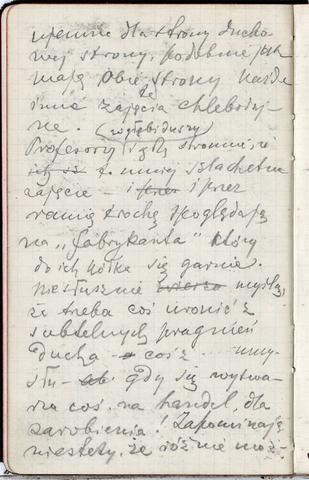 ujemne dla strony ducho-
wej strony, podobnie jak
mają obie strony każde
inne zajęcia chleboday-
ne. (w głębi duszy)
Profesorzy są stronni, że
to mniej szlachetne
zajęcie – i i przez
ramię trochę spoglądają
na „fabrykanta" który
do ich kółka się garnie.
Niesłusznie myślą,
że trzeba coś uronić z
subtelnych pragnień
ducha – coś z ... umy-
słu – gdy się wytwa-
rza coś na handel, dla
zarobienia! Zapominają
niestety, że różnie moż-